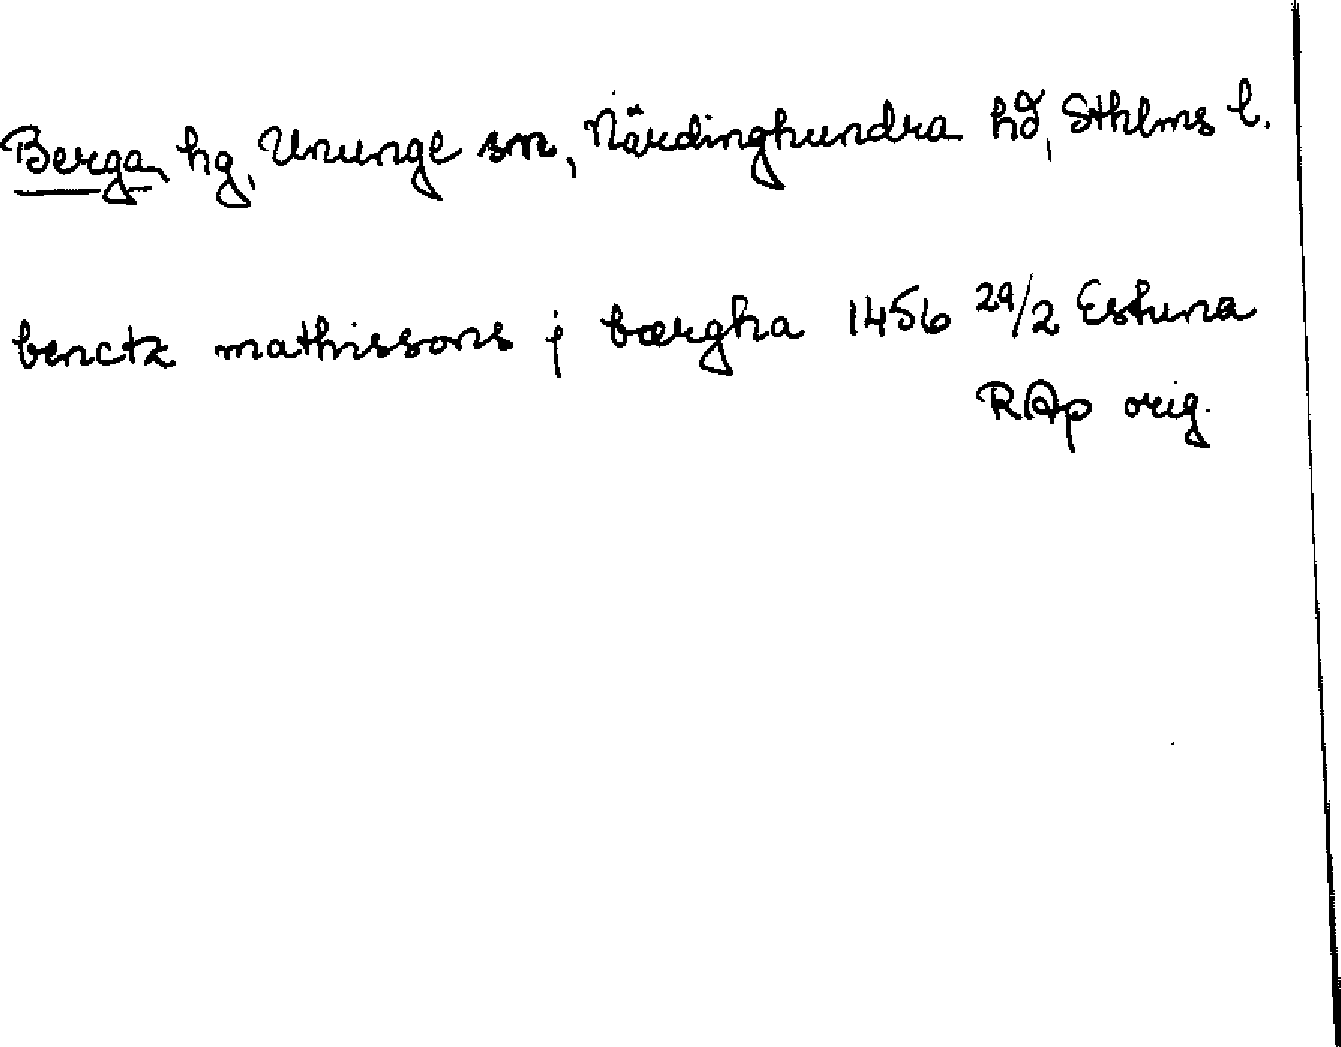 Berga, hg, Ununge sn, Närdinghundra hd, Sthlms l.
benctz mathissons j bærgha 1456 29/2 Estuna
RAp orig.